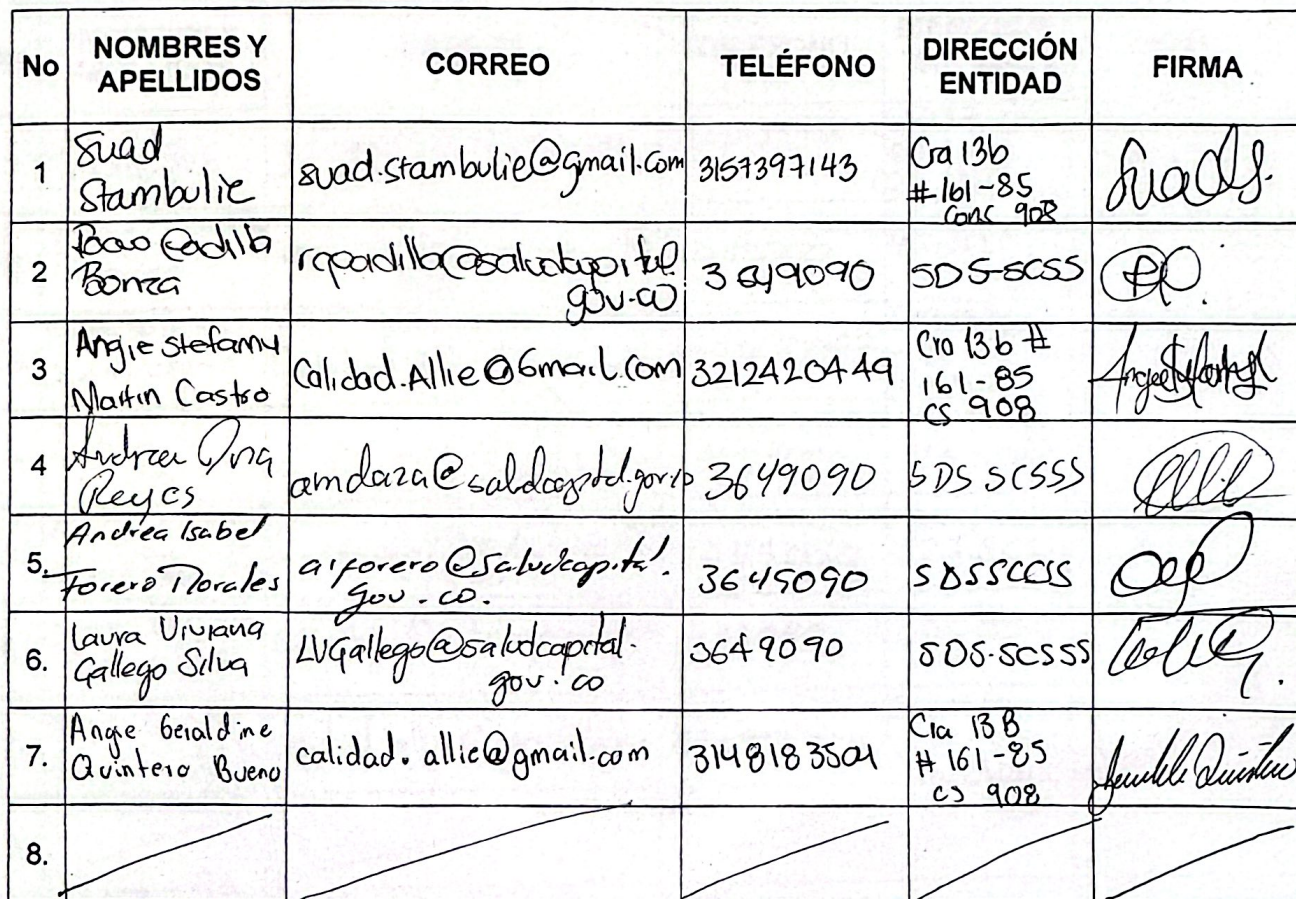 No NOMBRES Y APELLIDOS CORREO TELÉFONO DIRECCIÓN ENTIDAD FIRMA
1 Suad Stambulie suad.stambulie@gmail.com 3157397143 Cra 13b #161-85 Cons 908
2 Padilla Bonza rcpadilla@saludcapital.gov.co 3649090 SDS-SCSS
3 Angie Stefanny Martin Castro Calidad.Allie@Gmail.com 3212420449 Cra 13b # 161-85 cs 908
4 Andrea Reyes amdaza@saludcapital.gov.co 3649090 SDS SCSSS
5. Andrea Isabel Forero Morales aiforero@saludcapital.gov.co. 3649090 SDSSCCSS
6. Laura Viviana Gallego Silva LVGallego@saludcapital.gov.co 3649090 SDS-SCSSS
7. Angie Geraldine Quintero Bueno calidad.allie@gmail.com 3148183504 Cra 13B # 161-85 cs 908
8.